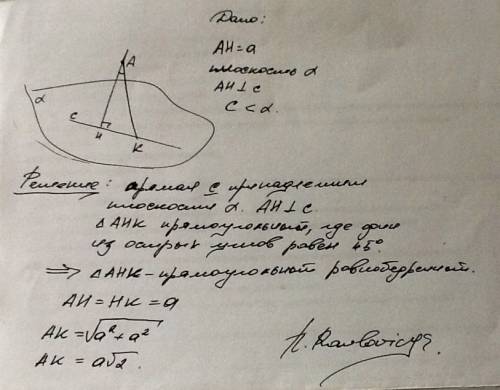 Дано:
AH = a
плоскость α
AH ⊥ c
C < α.
A
α
c
H
K
Решение: прямая c принадлежит
плоскости α. AH ⊥ c.
△AHK прямоугольный, где один
из острых углов равен 45°
⟹ △AHK - прямоугольный равнобедренный.
AH = HK = a
AK = √a² + a²
AK = a√2.